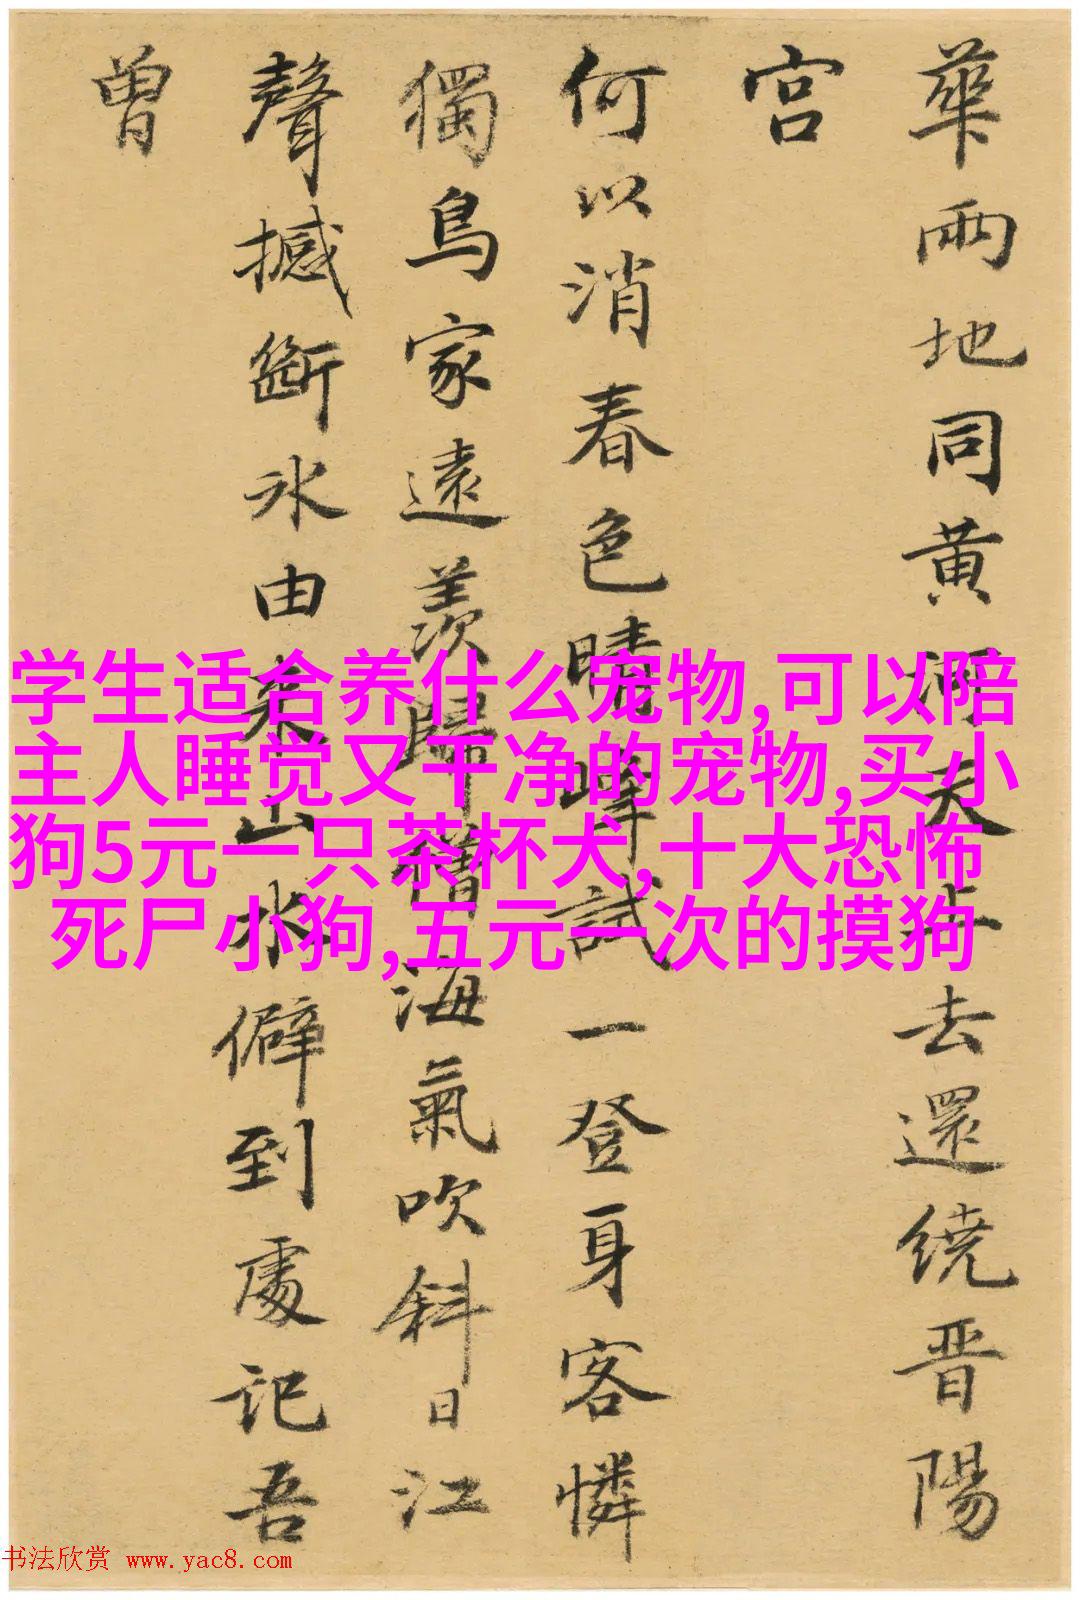 華兩地同黄河天上去還繞晋陽
宫
何以消春色晴峰試一登身客憐
獨鳥家遠羨歸僧海氣吹斜日江
聲撼斷氷由来山水僻到處記吾
曾
学生适合养什么宠物,可以陪
主人睡觉又干净的宠物,买小
狗5元一只茶杯犬,十大恐怖
死尸小狗,五元一次的摸狗
书法欣赏 www.yac8.com